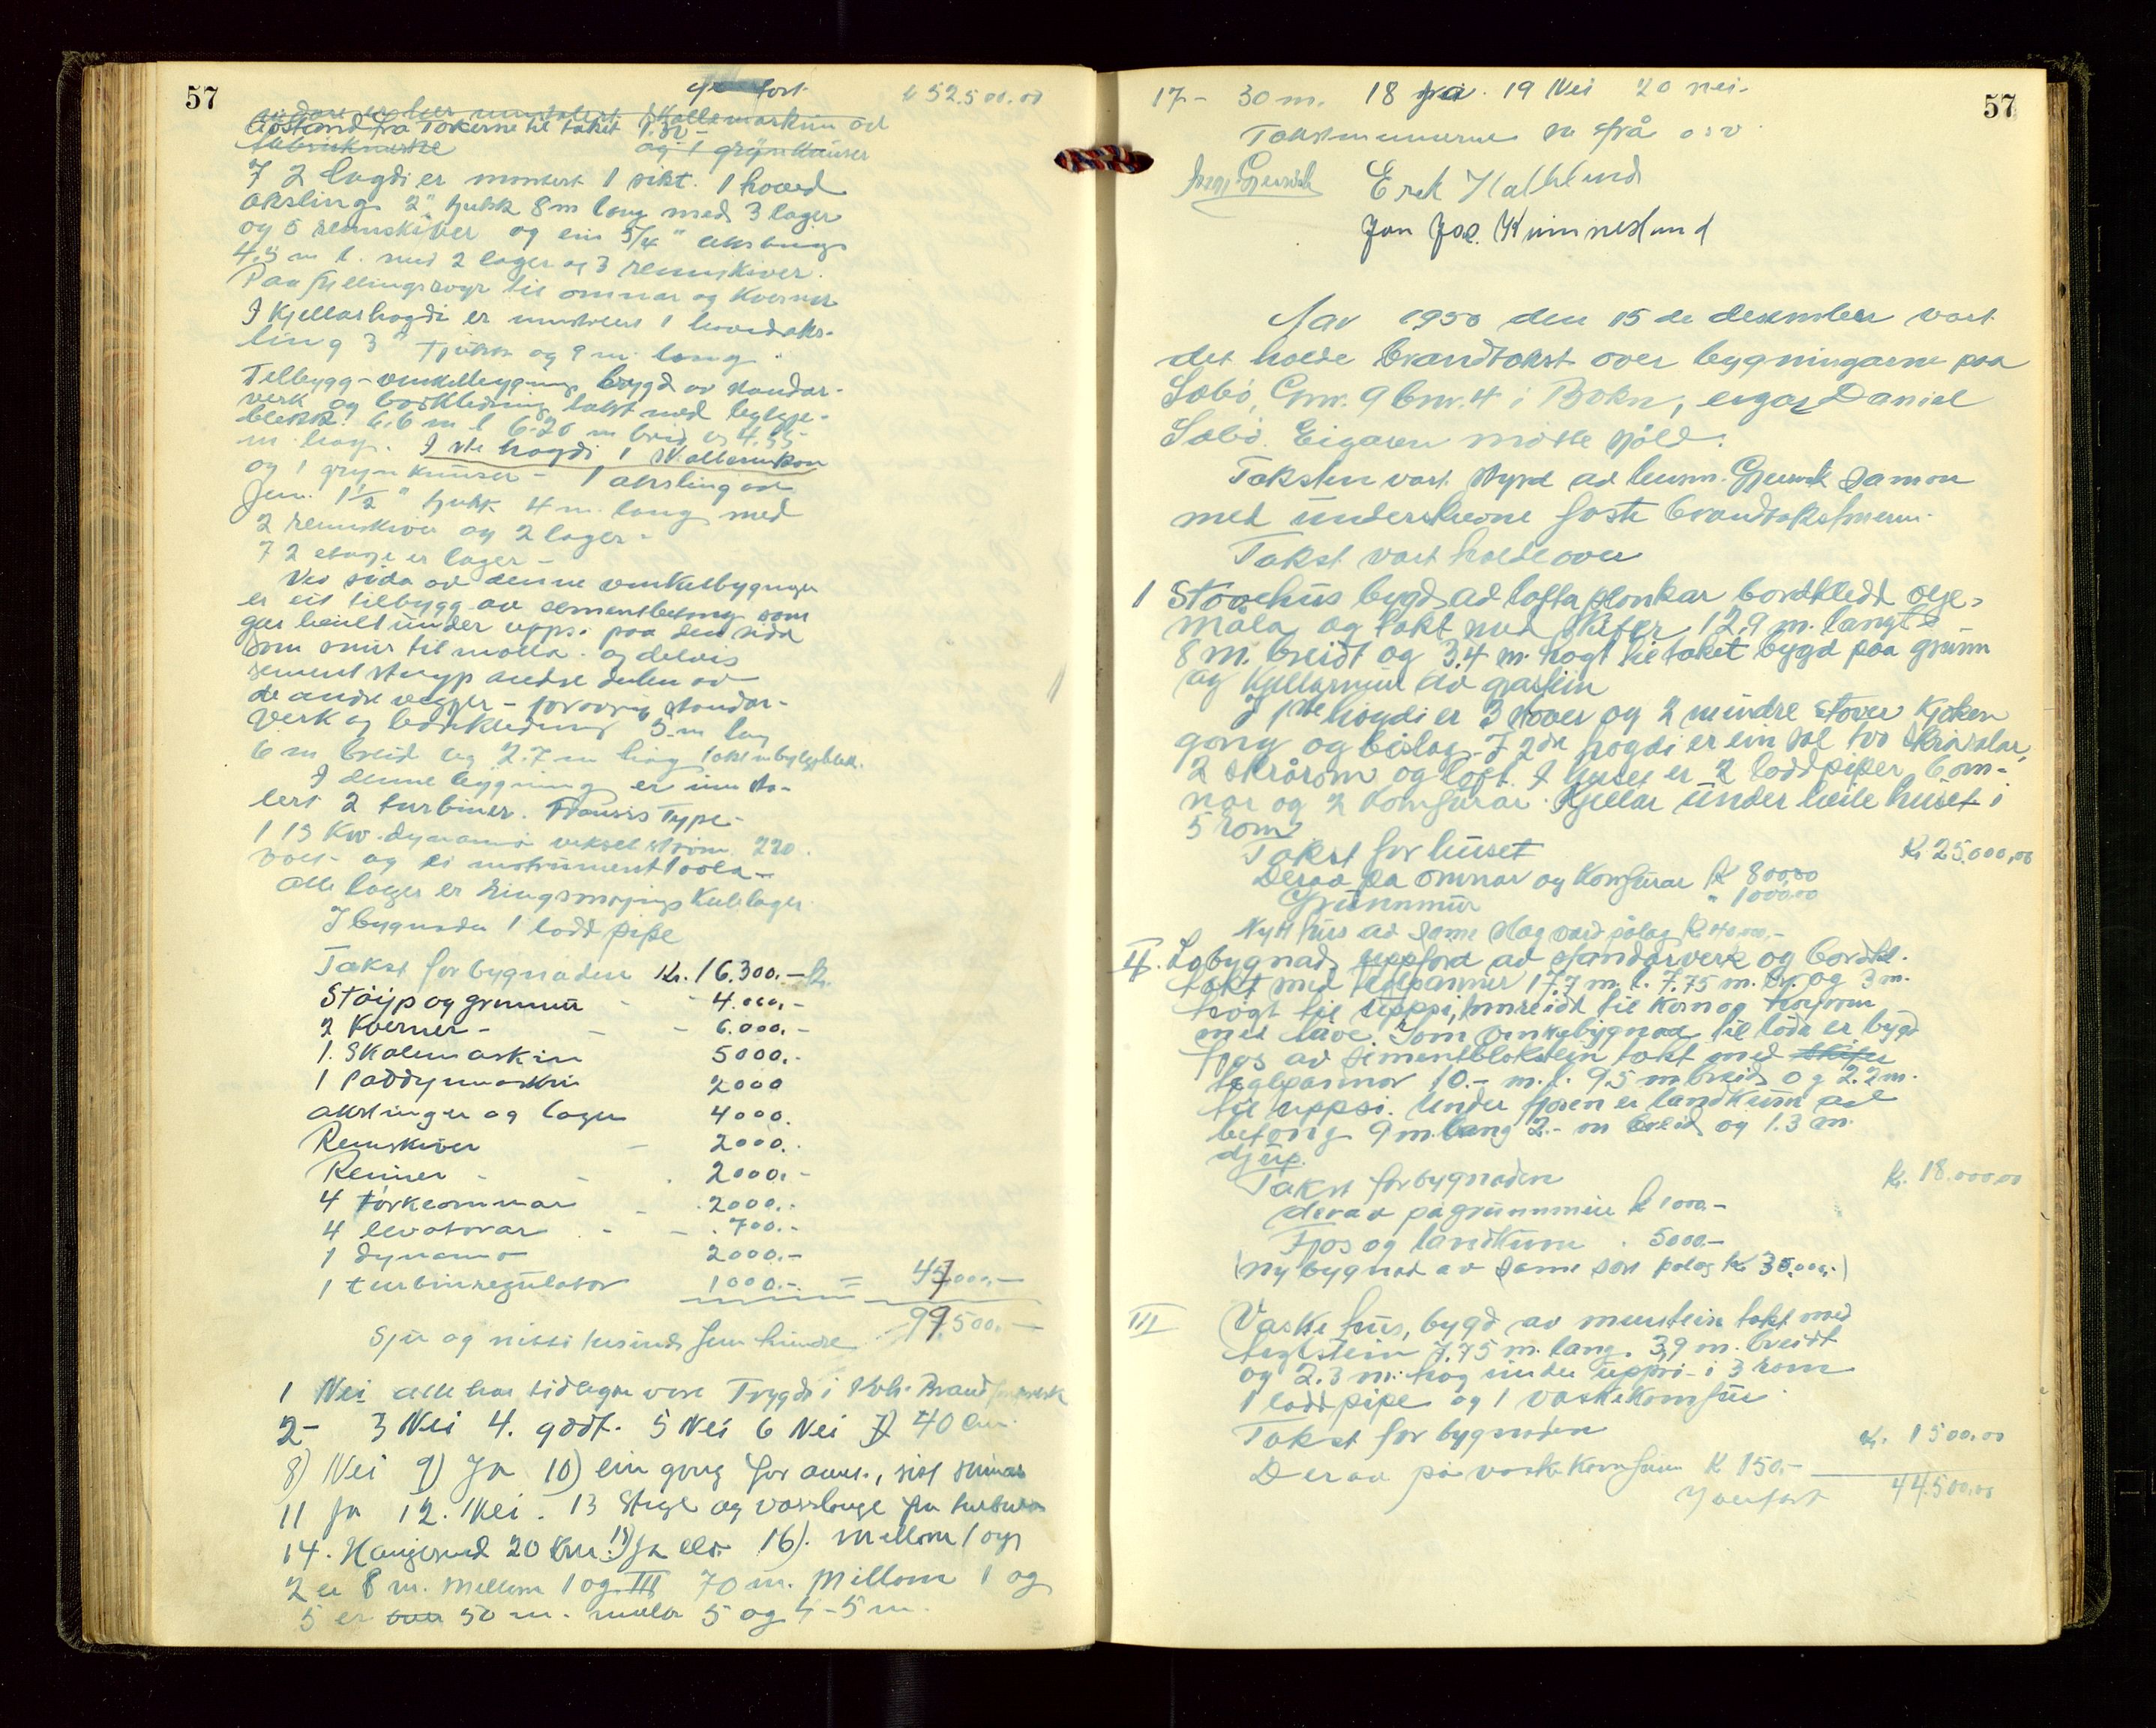 57
fort. k 52.500.00
Avstand fra Tørkerne til taket 1.30 -
og 1 grynknuser
I 2 høgdi er montert 1 sikt. 1 hoved
aksling 2" tjukk 8 m lang med 3 lager
og 5 remskiver og ein 5/4" aksling
4.5 m l. med 2 lager og 3 remskiver.
Paafyllingsrøyr til omnar og kverner
I Kjellarhøgdi er 1 hovedaks-
ling 3" tjukk og 9 m. lang.
Tilbygg - vinkelbygning bygd av standar-
verk og bordkledning takt med bylgje-
blekk. 6.6 m l 6.20 m breid og 4.55
m høg. I 1ste høgdi 1 Skallemaskin
og 1 grynknuser - 1 aksling av
Jern. 1½" tjukk 4 m. lang med
2 remskiver og 2 lager.
I 2 etasje er lager -
Ved sida av denne vinkelbygningen
er eit tilbygg av sementbetong som
gar heilt under upps. paa den sida
som snur til mølla. og delvis
sementstøyp andre delen av
de andre vegger - forøvrig standar-
verk og bordkledning 5 m lang
6 m breid og 2.7 m høg takt m bylgjeblekk.
I denne bygning er insta-
lert 2 turbiner. Francis Type.
1 15 Kw. dynamo vekselstrøm 220
volt - og ei instrumenttavla -
Alle lager er Ringsmørjings Kulelager.
I bygnaden 1 lodd pipe
Takst for bygnaden Kr. 16.300.-
Støyp og grunnur - - 4.000.-
2 Kverner - - - 6.000.-
1. Skalemaskin 5000.-
1 Paddymaskin 2000
akslinger og lager 4000.
Remskiver - 2000.-
Reimer - - 2000.-
4 tørkeomnar - 2000.-
4 levatorar - - 700.-
1 dynamo 2000.-
1 turbinregulator 1000.- = 47.000.-
99.500.-
Sju og nitti tusind fem hundre
1 Nei alle har tidlegre vore Trygde i Kvh. Brand
2 - 3 Nei 4. godt. 5 Nei 6 Nei 7) 40 cm.
8) Nei 9) Ja 10) ein gong for aaret, sist
11 Ja 12. Nei. 13 Stige og vasslange fra turbinen
14. Haugesund 20 km. 15) Ja elv. 16). Mellom 1 og
2 er 8 m. Mellom 1 og III 70 m. Millom 1 og
5 er over 50 m. mellom 5 og 4 - 5 m.
57
17 - 30 m. 18 ja. 19 Nei 20 nei.
Takstmennerne
Erik Halleland
Jon Jos. Kvinnesland
Aar 1950 den 15 de desember vart
det halde brandtakst over bygningarne paa
Sæbø, Gnr. 9 bnr. 4 i Bokn, eigar Daniel
Sæbø. Eigaren møtte sjølv.
Taksten vart styrd av lensm. Gjersvik saman
med underskrevne faste brandtakstmenn.
Takst vart halde over
1 Stovehus bygd av lafta plonkar bordkledd olje-
måla og takt med skifer 12,9 m. langt
8 m. breidt og 3.4 m. høgt til taket bygd paa grunn
og kjellarmur av gråstein
I 1ste høgdi er 3 stover og 2 mindre stover kjøken
gang og bislag. I 2dre høgdi er ein sal tvo skråsalar,
2 skrårom og loft. I huset er 2 loddpiper 6 om-
nar og 2 komfurar. Kjellar under heile huset i
5 rom
Takst for huset Kr. 25.000,00
Derav pa omnar og komfurar K 800.00
Grunnmur " 1000.00
Nytt hus av same slag vard pålag K 40.000.-
II. Løbygnad, uppførd av standarverk og bordkl.
takt med teglpanner 17.7 m. l. 7.75 m. br. og 3 m.
høgt til uppsi, innreidt til korn og høyrom
med låve. Som vinkebygnad til løda er bygd
fjos av sementblokstein takt med skifer
teglpannor 10.- m. l. 9.5 m breid og 2.2 m.
til uppsi. Under fjosen er landkum av
betong 9 m. lang 2.- m breid og 1.3 m.
djup.
Takst for bygnaden Kr. 18.000,00
derav pa grunnmur k 1000.-
Fjos og landkum . 5000.-
(ny bygnad av same sort palag kr 35.000.-)
III Vaskehus, bygd av murstein takt med
teglstein 7.75 m. lang. 3,9 m. breidt
og 2.3 m. høg under uppsi - i 3 rom
1 loddpipe og 1 vaskekomfur
Takst for bygnaden Kr. 1500.00
Derav på vaskekomfuren K 150.-
Yverført 44.500,00